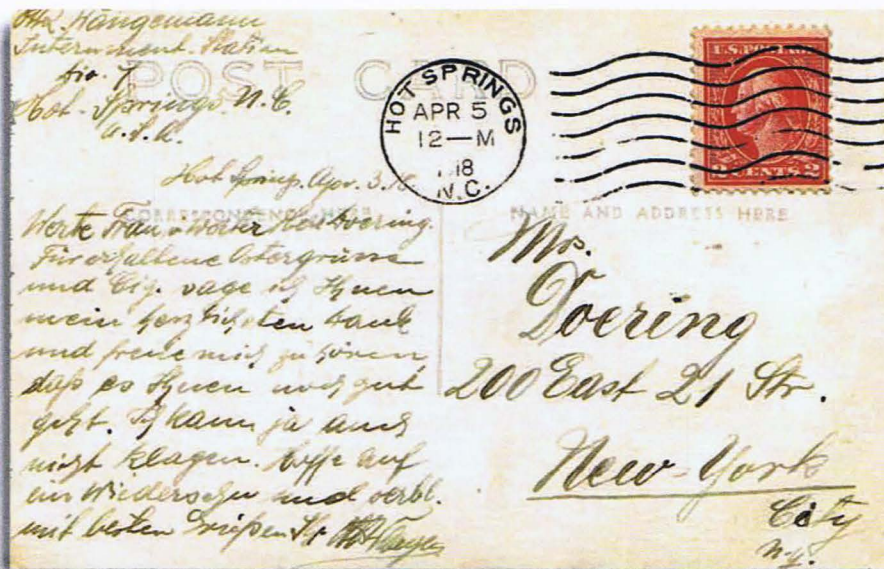 Hängemann
Internment. Station
No. 7
Hot-Springs. N.C.
U.S.A.
POST CARD
HOT SPRINGS
APR 5
12—M
1918
N.C.
U.S. POSTAGE
2 CENTS 2
Hot Spring. Apr. 3. 18.
CORRESPONDENCE HERE
NAME AND ADDRESS HERE
Werte Frau werter Herr Doering.
Für erhaltene Ostergrüsse
und Cig. sage ich Ihnen
mein herzlichsten Dank
und freue mich zu hören,
daß es Ihnen noch gut
geht. Ich kann ja auch
nicht klagen. Hoffe auf
ein Wiedersehn und verbl.
mit besten Grüßen Ihr
Mr.
Doering
200 East 21 Str.
New-York
City
N.Y.